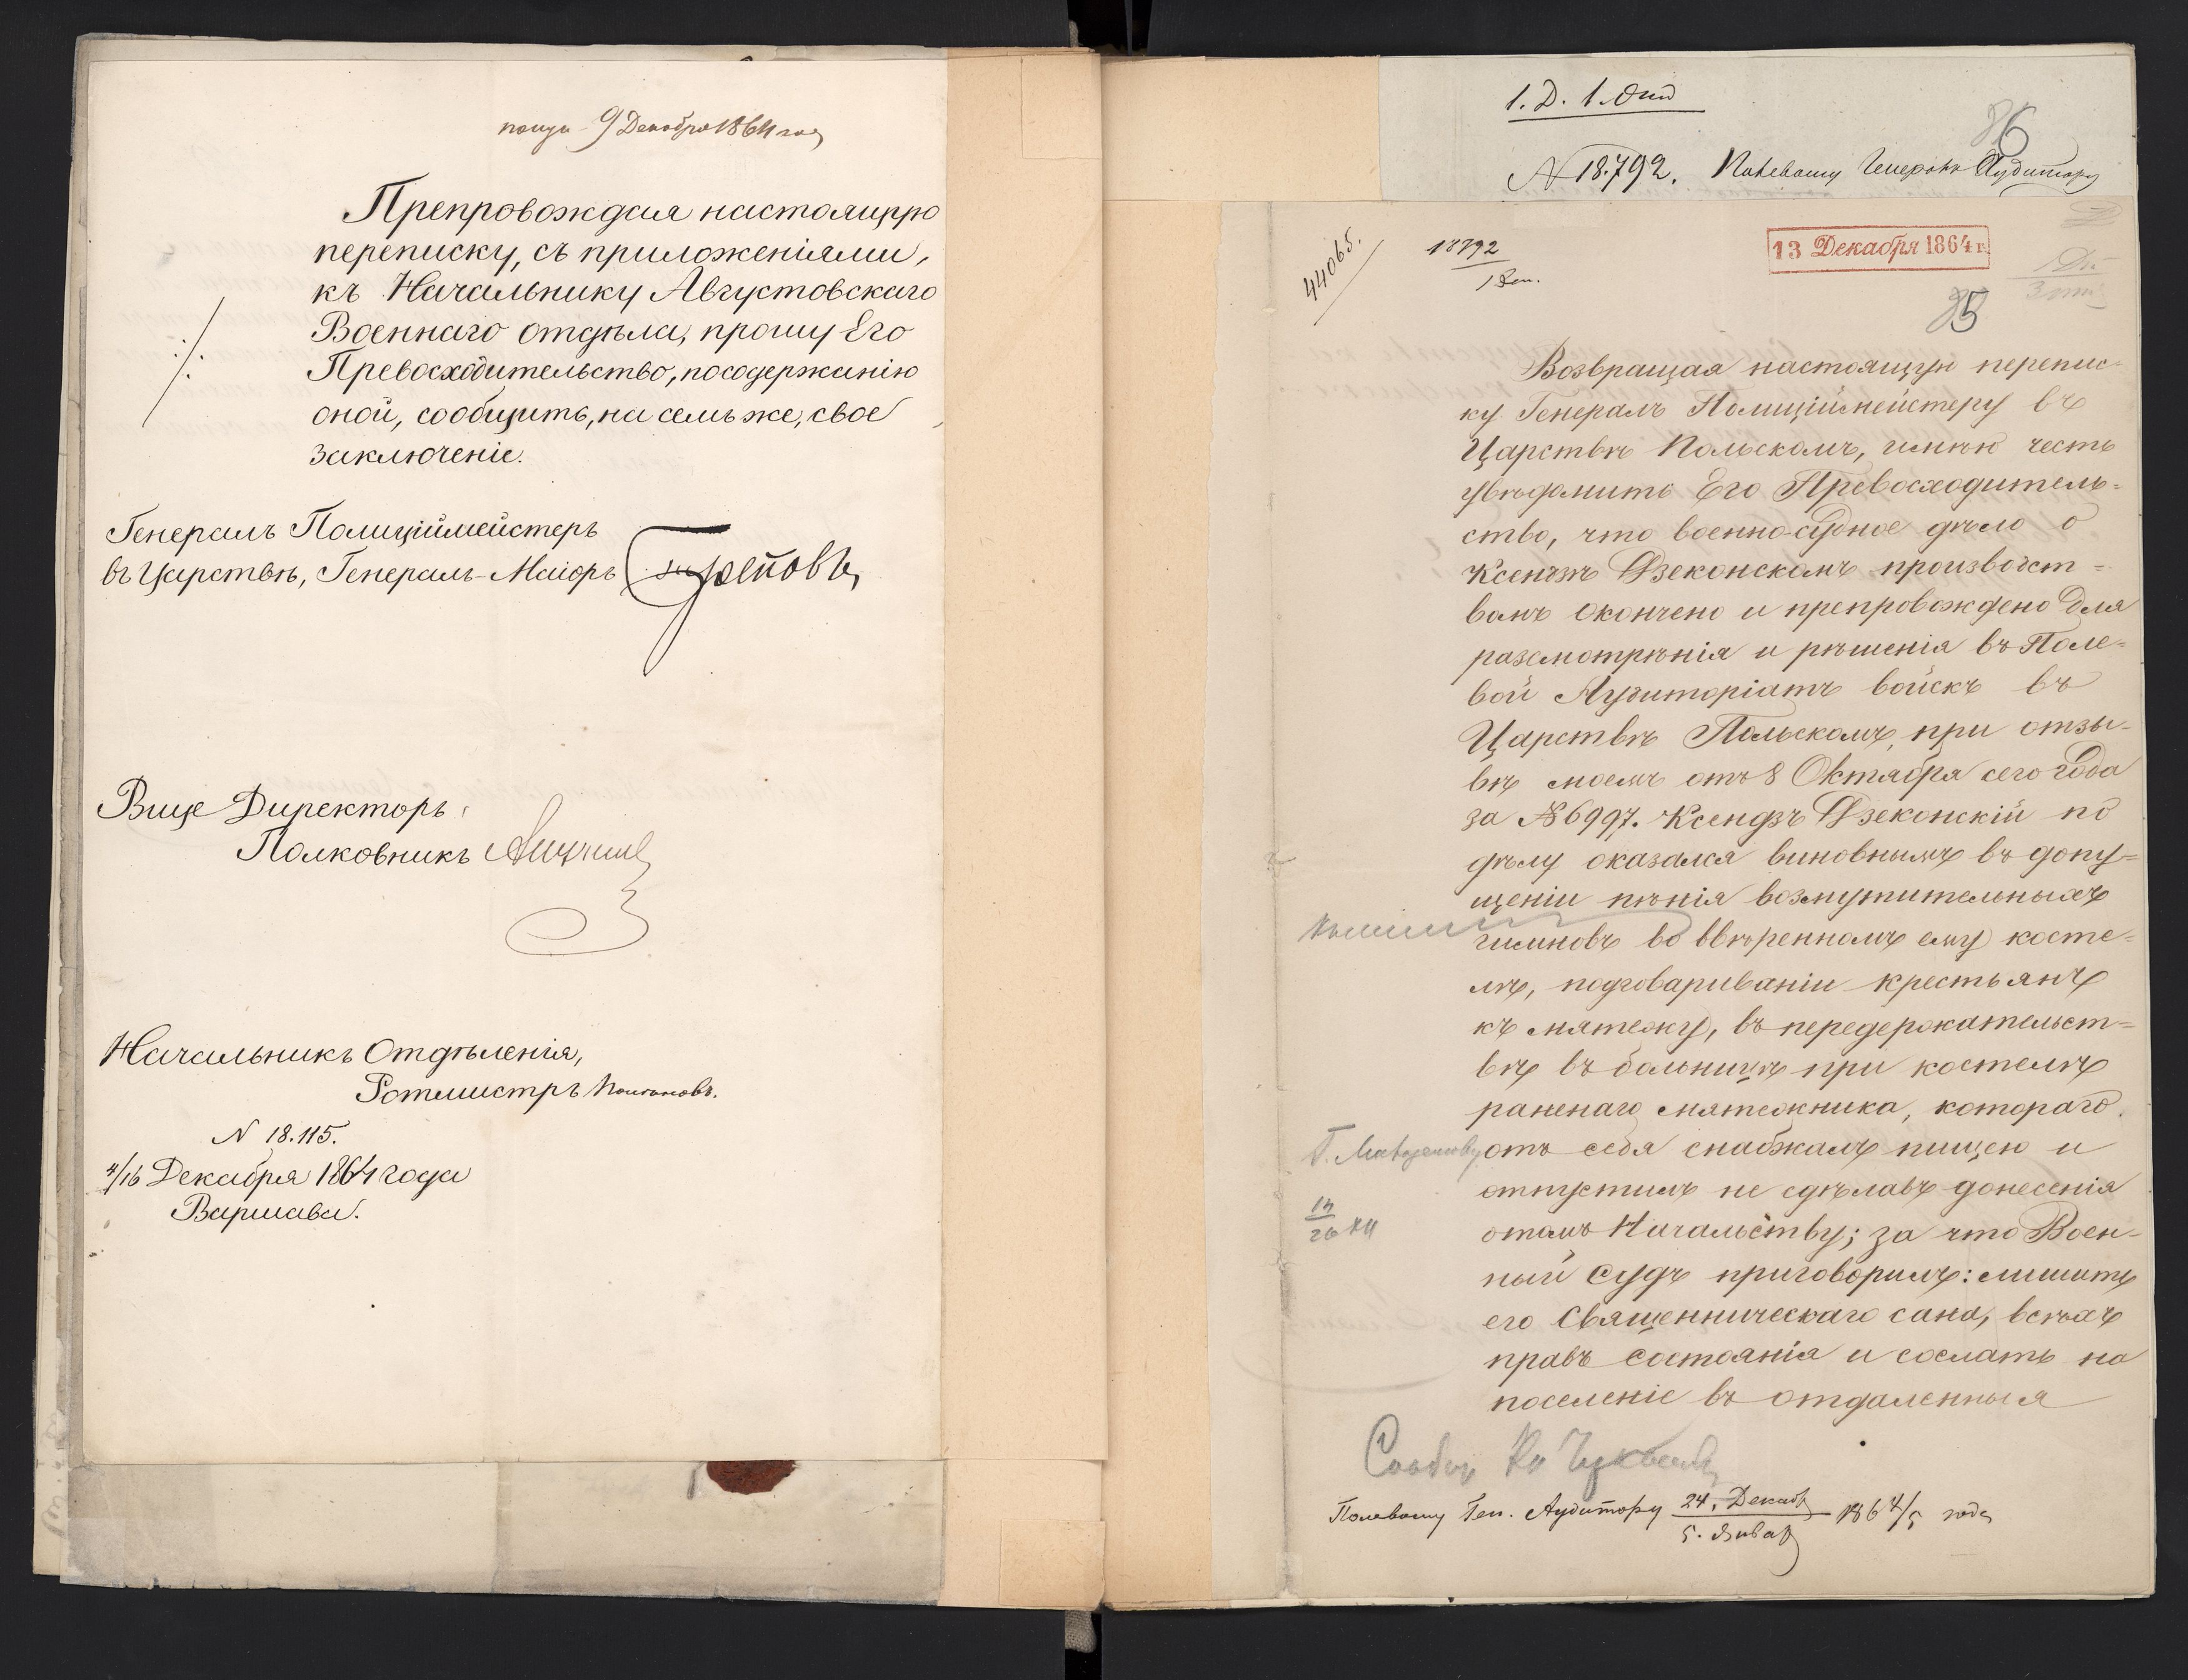 получ. 9 Декабря 1864 года
Препровождая настоящую
переписку, съ приложеніями,
къ Начальнику Августовскаго
Военнаго отдѣла, прошу Его
Превосходительство, по содержанію
оной, сообщить, на семъ же, свое
заключеніе.
Генералъ Полиціймейстеръ
въ Царствѣ, Генералъ-Маіоръ Треповъ
Вице Директоръ
Полковникъ
Начальникъ Отдѣленія,
Ротмистръ
N 18.115.
4/16 Декабря 1864 года
Варшава.
1. Д. 1.
N 18.792. Полевому Генералъ Аудитору
86
44065.
18792
13 Декабря 1864 г.
85
Возвращая настоящую перепис-
ку Генералъ Полиціймейстеру въ
Царствѣ Польскомъ, имѣю честь
увѣдомить Его Превосходитель=
ство, что военно-судное дѣло о
Ксензѣ Дзеконскомъ производст=
вомъ окончено и препровождено для
разсмотрѣнія и рѣшенія въ Поле=
вой Аудиторіатъ войскъ въ
Царствѣ Польскомъ, при отзы-
вѣ моемъ отъ 8 Октября сего года
за № 6997. Ксендзъ Дзеконскій по
дѣлу оказался виновнымъ въ допу=
щеніи пѣнія возмутительныхъ
гимновъ во ввѣренномъ ему косте=
лѣ, подговариваніи крестьянъ
къ мятежу, въ передержательст=
вѣ въ больницѣ при костелѣ
раненаго мятежника, котораго
отъ себя снабжалъ пищею и
отпустилъ не сдѣлавъ донесенія
отомъ Начальству; за что Воен-
ный Судъ приговорилъ: лишить
его Священническаго сана, всѣхъ
правъ состоянія и сослать на
поселеніе въ отдаленныя
14/26 XII
Полевому Ген. Аудитору 24. Декаб/5. Январ 1864/5 года